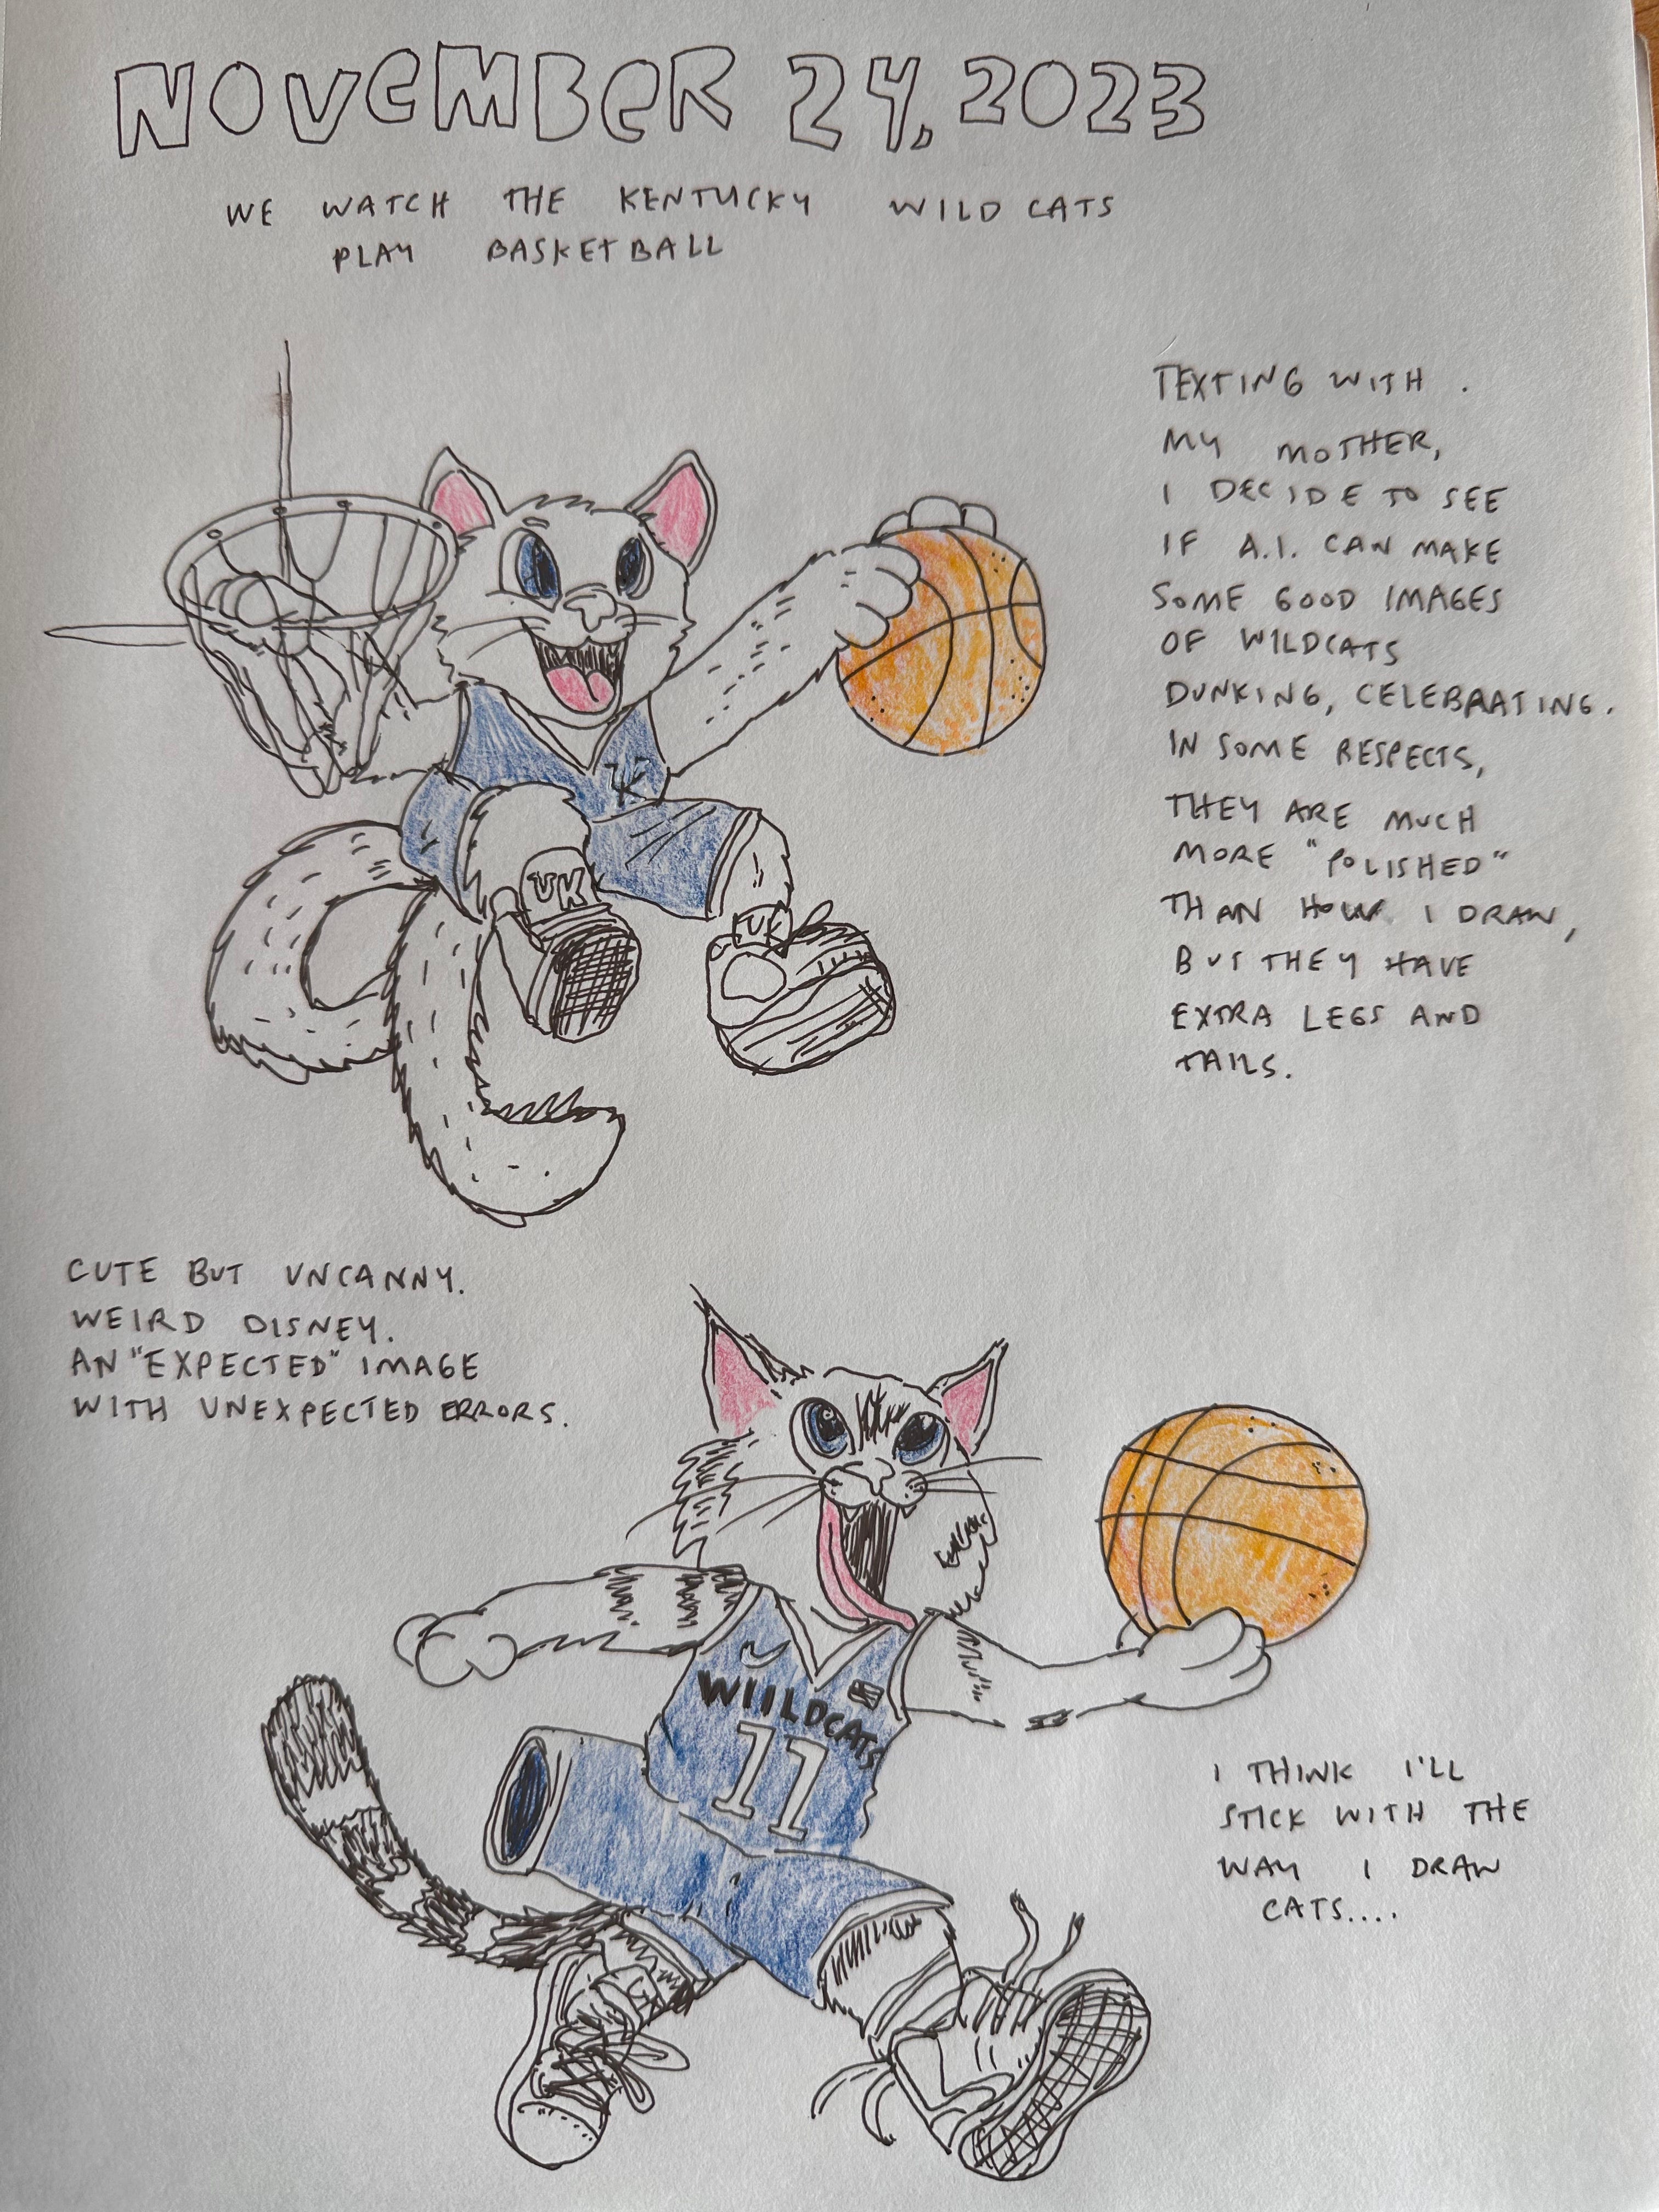 NOVEMBER 24, 2023
WE WATCH THE KENTUCKY WILDCATS
PLAY BASKETBALL
TEXTING WITH
MY MOTHER,
I DECIDE TO SEE
IF A.I. CAN MAKE
SOME GOOD IMAGES
OF WILDCATS
DUNKING, CELEBRATING.
IN SOME RESPECTS,
THEY ARE MUCH
MORE "POLISHED"
THAN HOW I DRAW,
BUT THEY HAVE
EXTRA LEGS AND
TAILS.
UK
UK
UK
CUTE BUT UNCANNY.
WEIRD DISNEY.
AN "EXPECTED" IMAGE
WITH UNEXPECTED ERRORS.
WIILDCATS
11
I THINK I'LL
STICK WITH THE
WAY I DRAW
CATS....